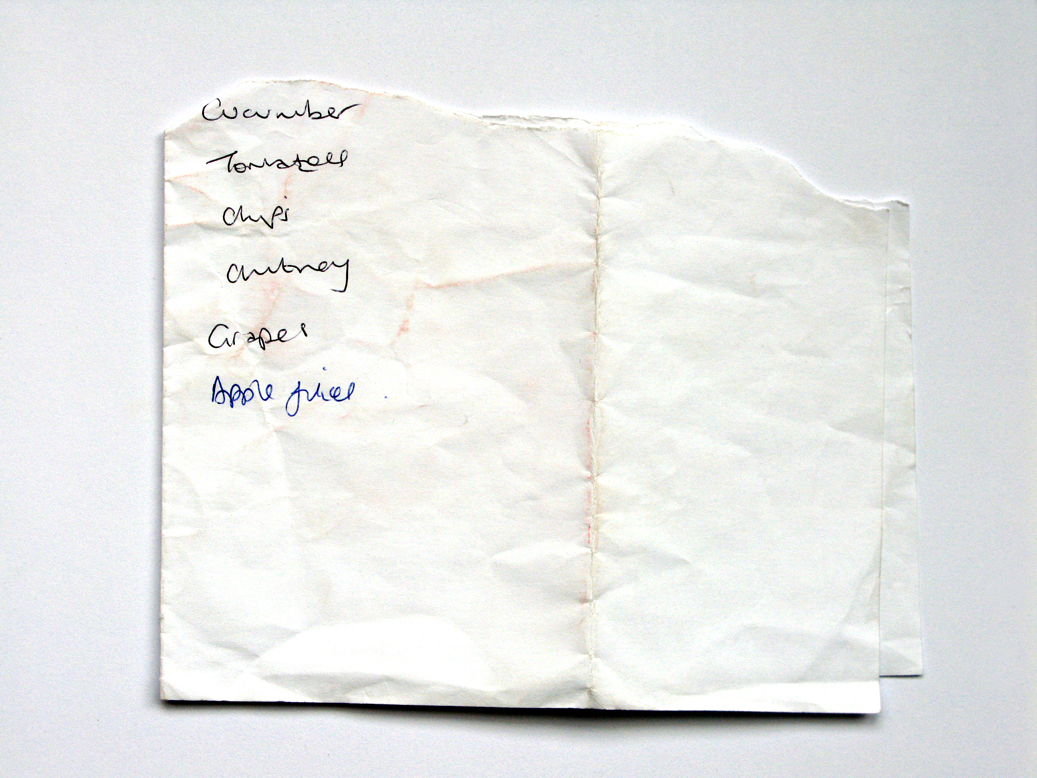 Cucumber
Tomatoes
Chips
Chutney
Grapes
Apple juice.